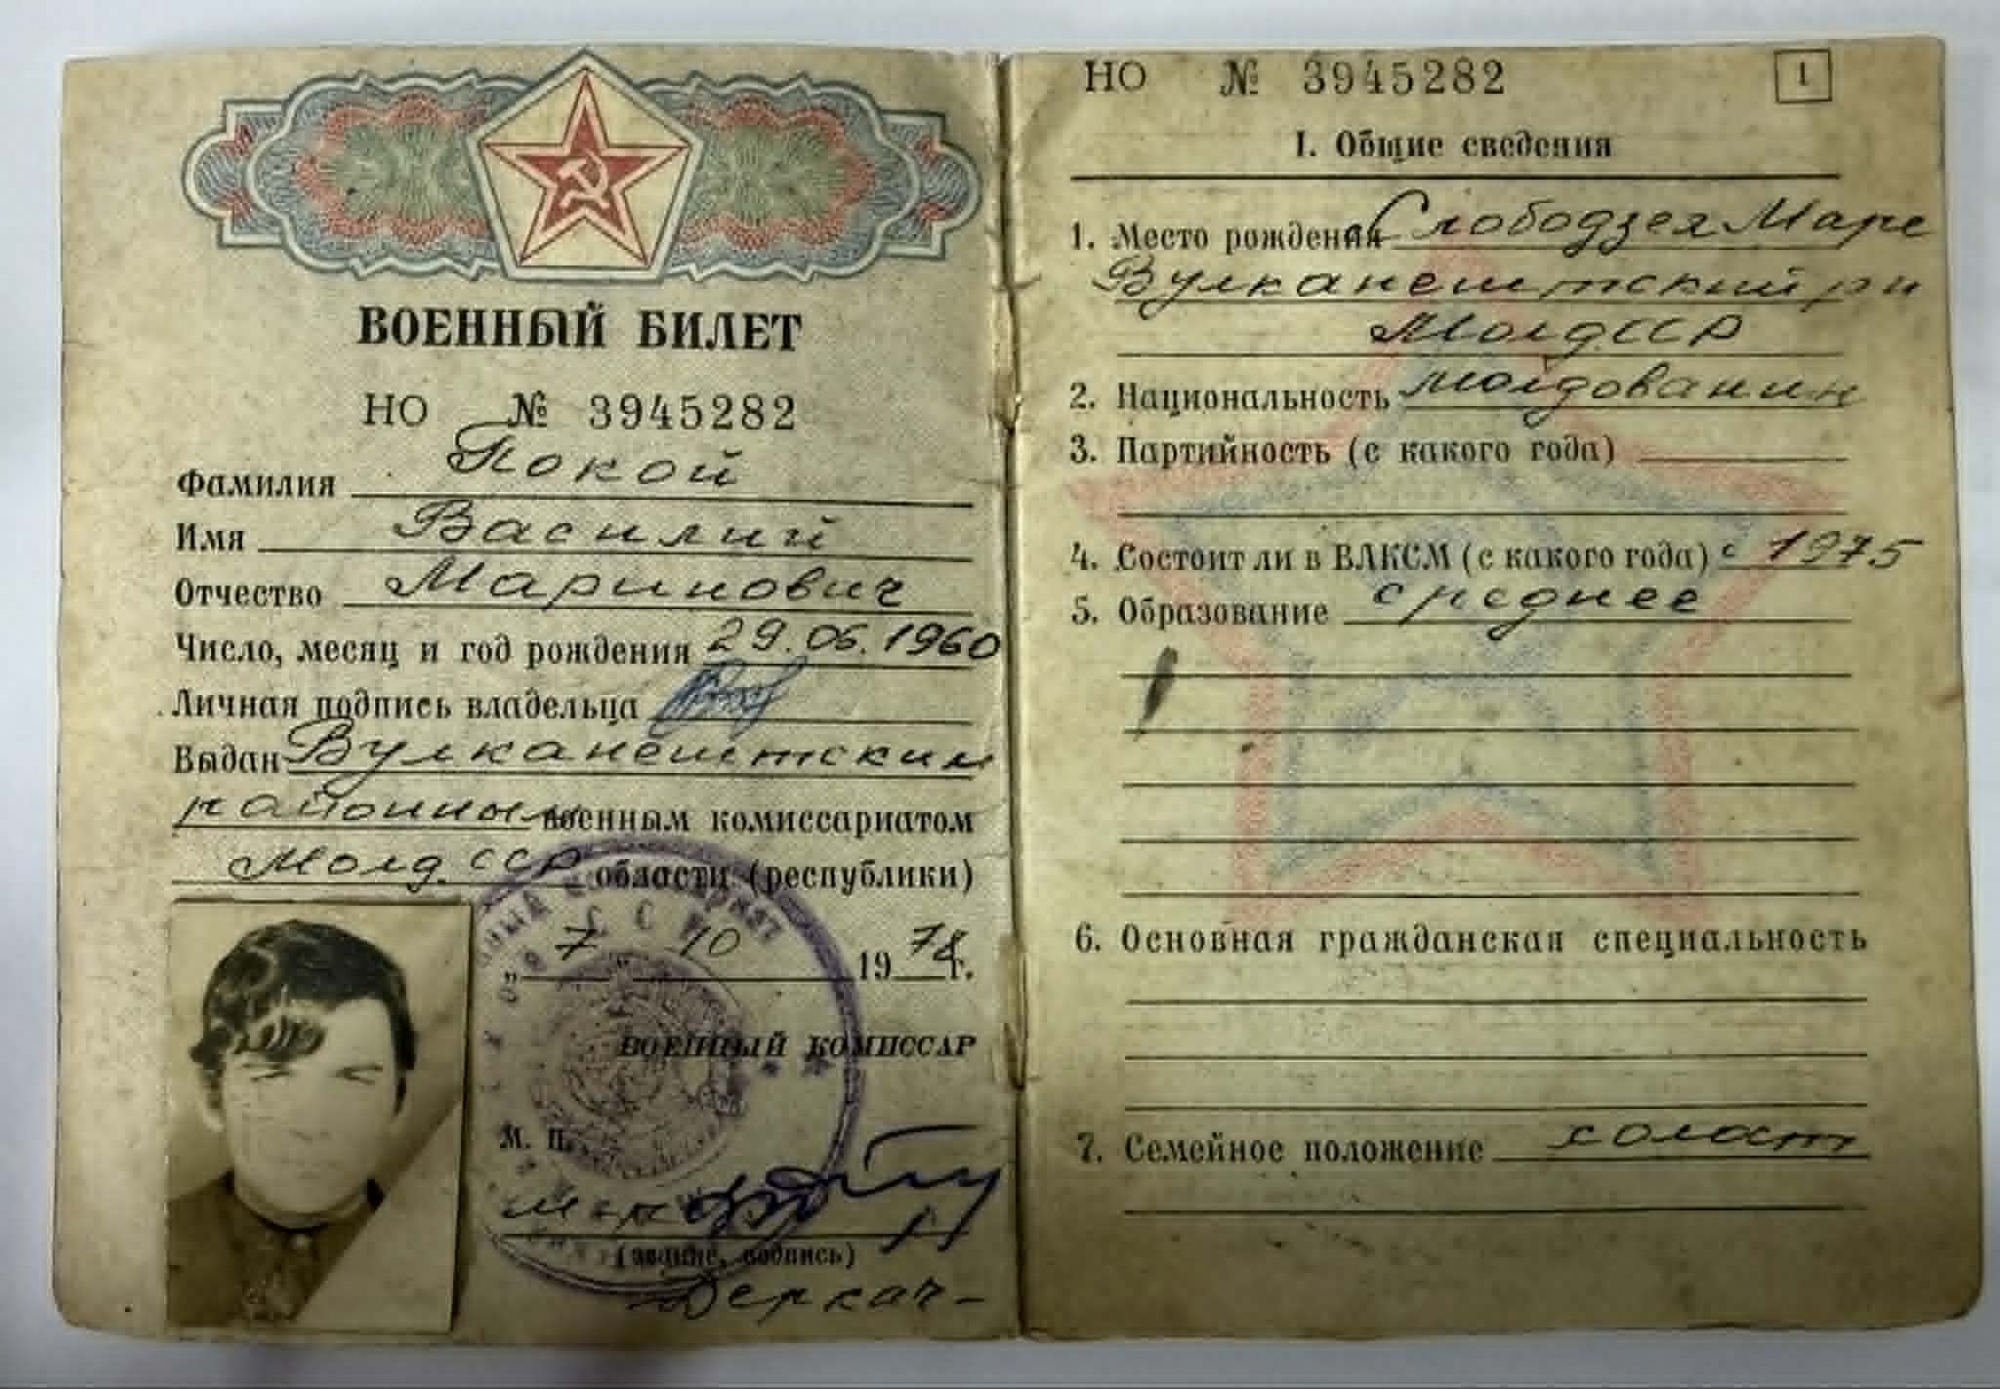 ВОЕННЫЙ БИЛЕТ
НО № 3945282
Фамилия Покой
Имя Василий
Отчество Маринович
Число, месяц и год рождения 29.06.1960
Личная подпись владельца
Выдан Вулканештским
районным военным комиссариатом
Молд. ССР области (республики)
7 10 1978 г.
ВОЕННЫЙ КОМИССАР
М. П.
(звание, подпись)
Деркач
НО № 3945282
1
I. Общие сведения
1. Место рождения Слободзея Маре
Вулканештский рн
МолдССР
2. Национальность молдованин
3. Партийность (с какого года)
4. Состоит ли в ВЛКСМ (с какого года) с 1975
5. Образование среднее
6. Основная гражданская специальность
7. Семейное положение холост